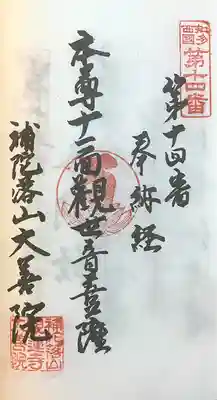 知多
西國
第十四番
第十四番
奉納経
本尊十一面觀世音菩薩
補陀落山大善院